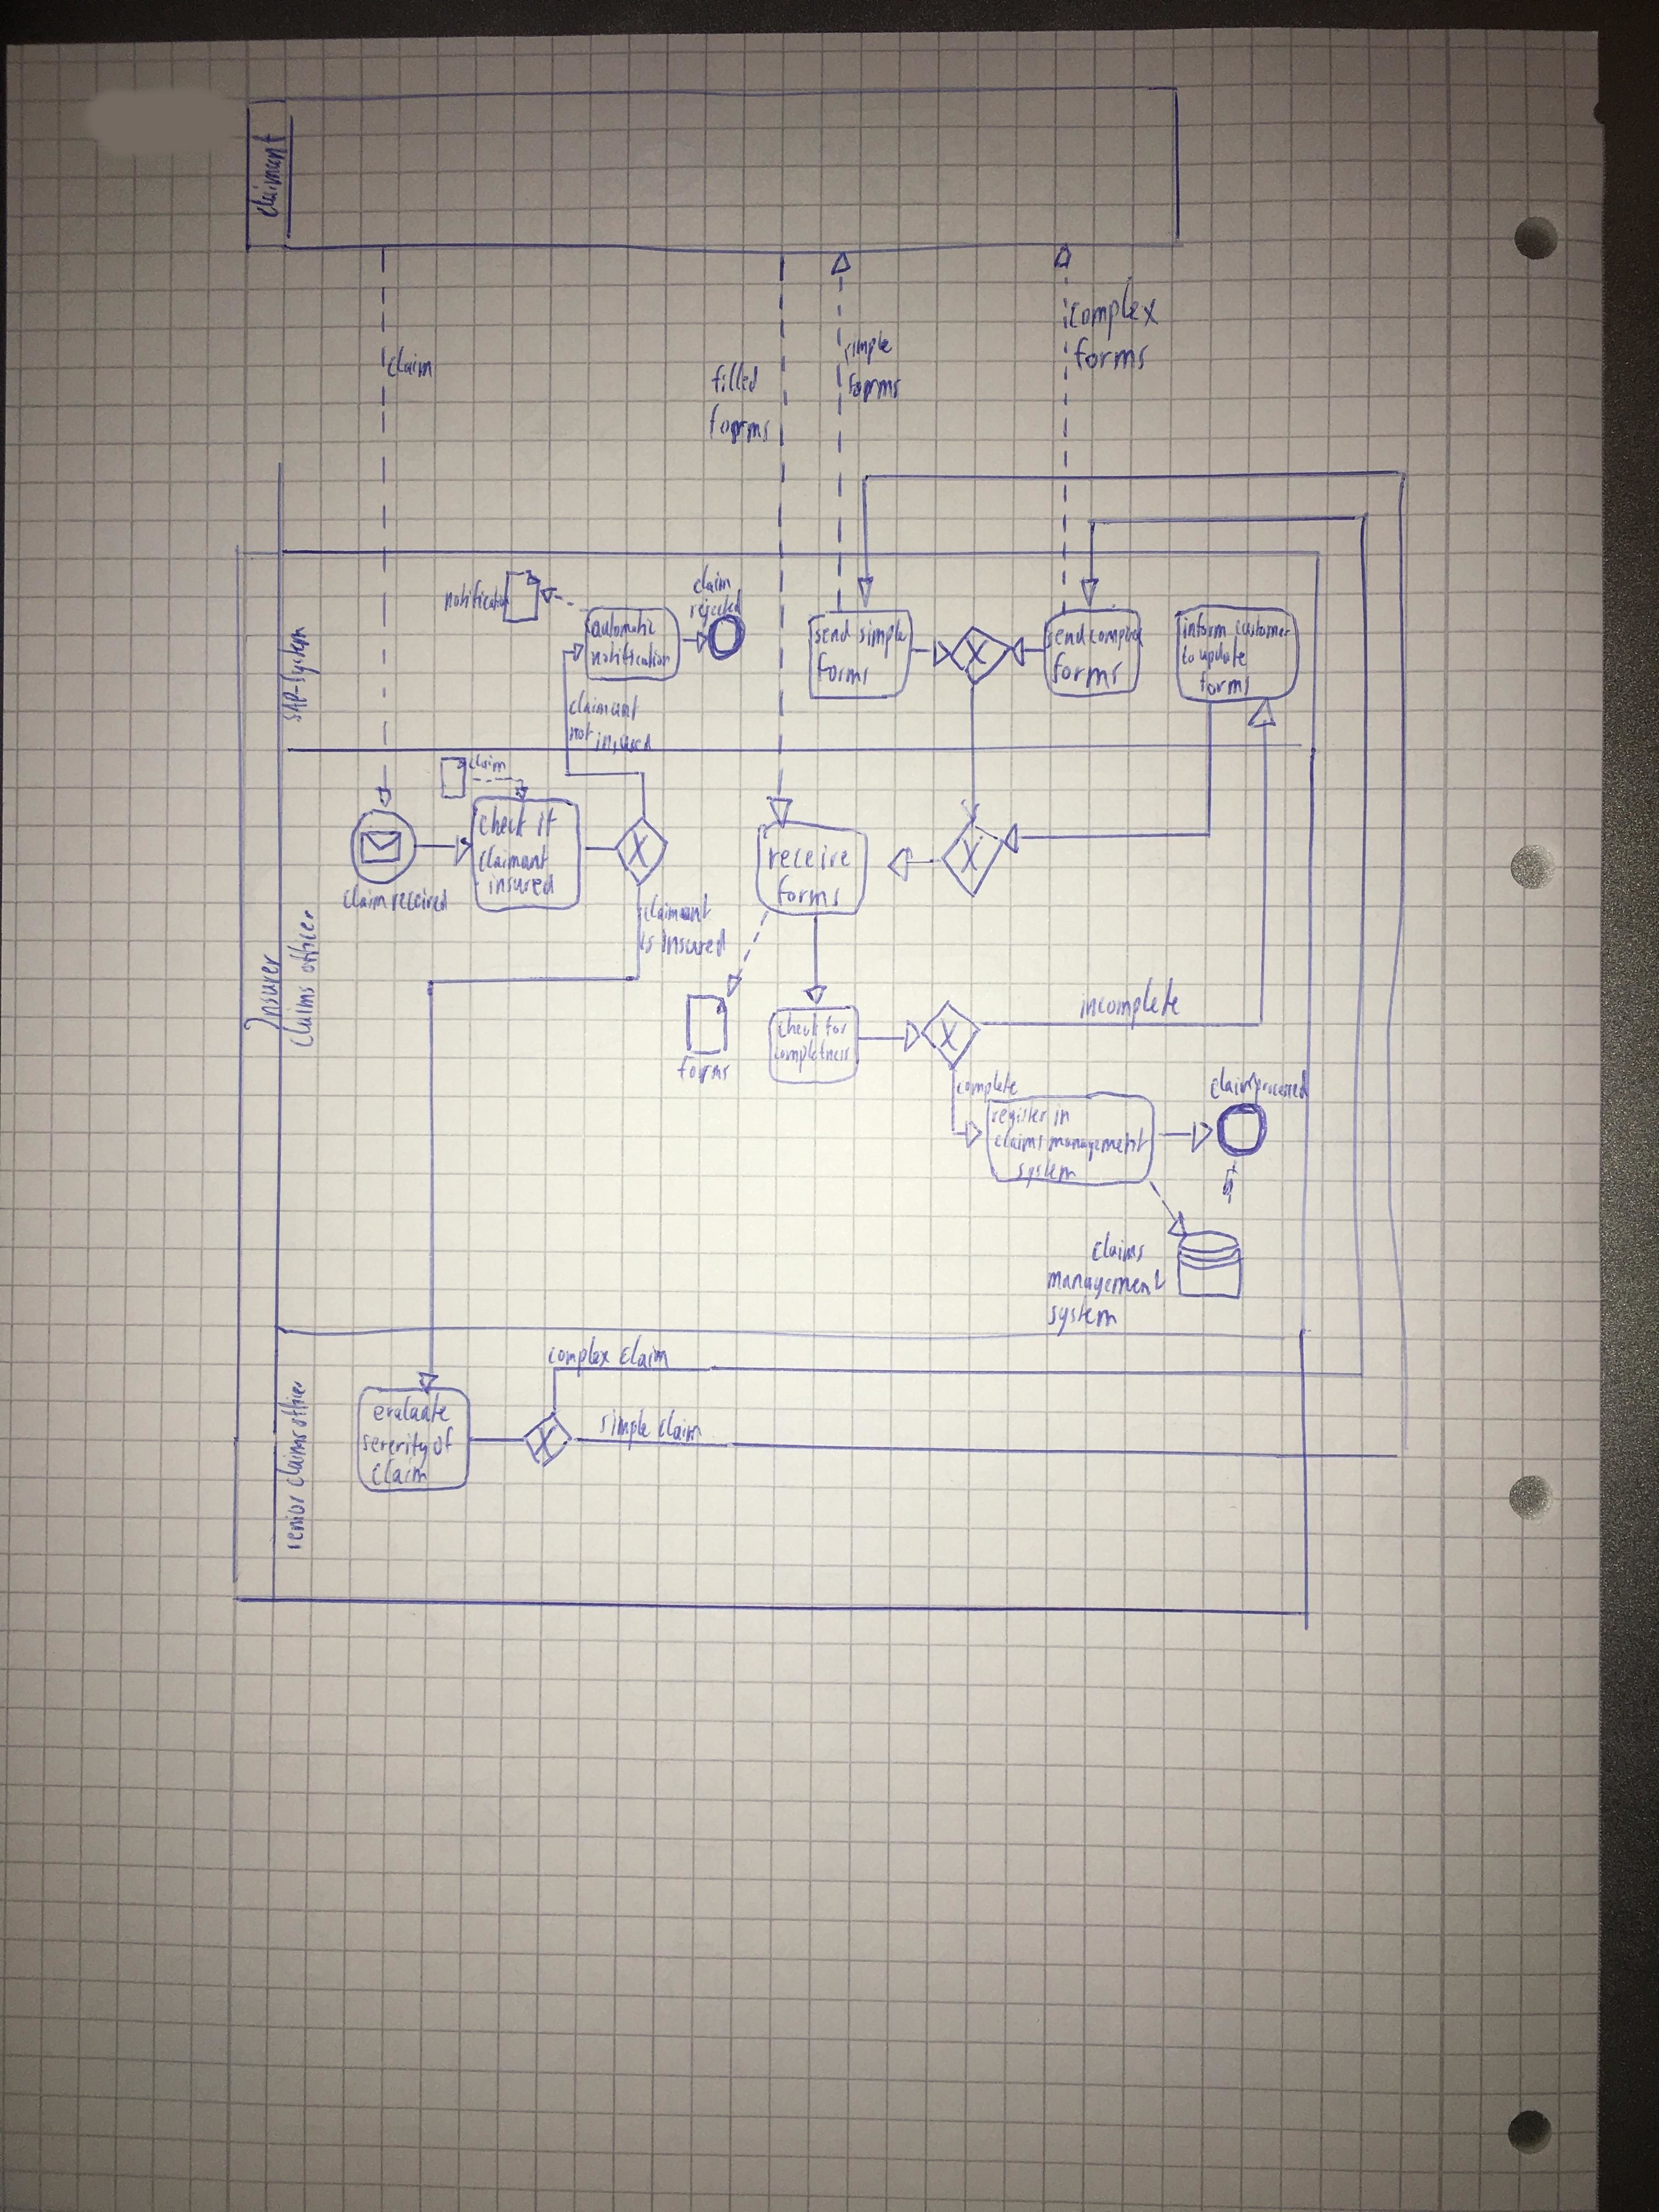 claimant
claim
filled
forms
simple
forms
complex
forms
Insurer
SAP-System
notification
automatic
notification
claim
rejected
send simple
forms
X
send complex
forms
inform customer
to update
forms
claimant
not insured
claims officer
claim
claim received
check if
claimant
insured
X
claimant
is insured
receive
forms
X
forms
check for
completness
X
incomplete
complete
register in
claims management
system
claim processed
claims
management
system
senior claims officer
evaluate
severity of
claim
X
complex claim
simple claim